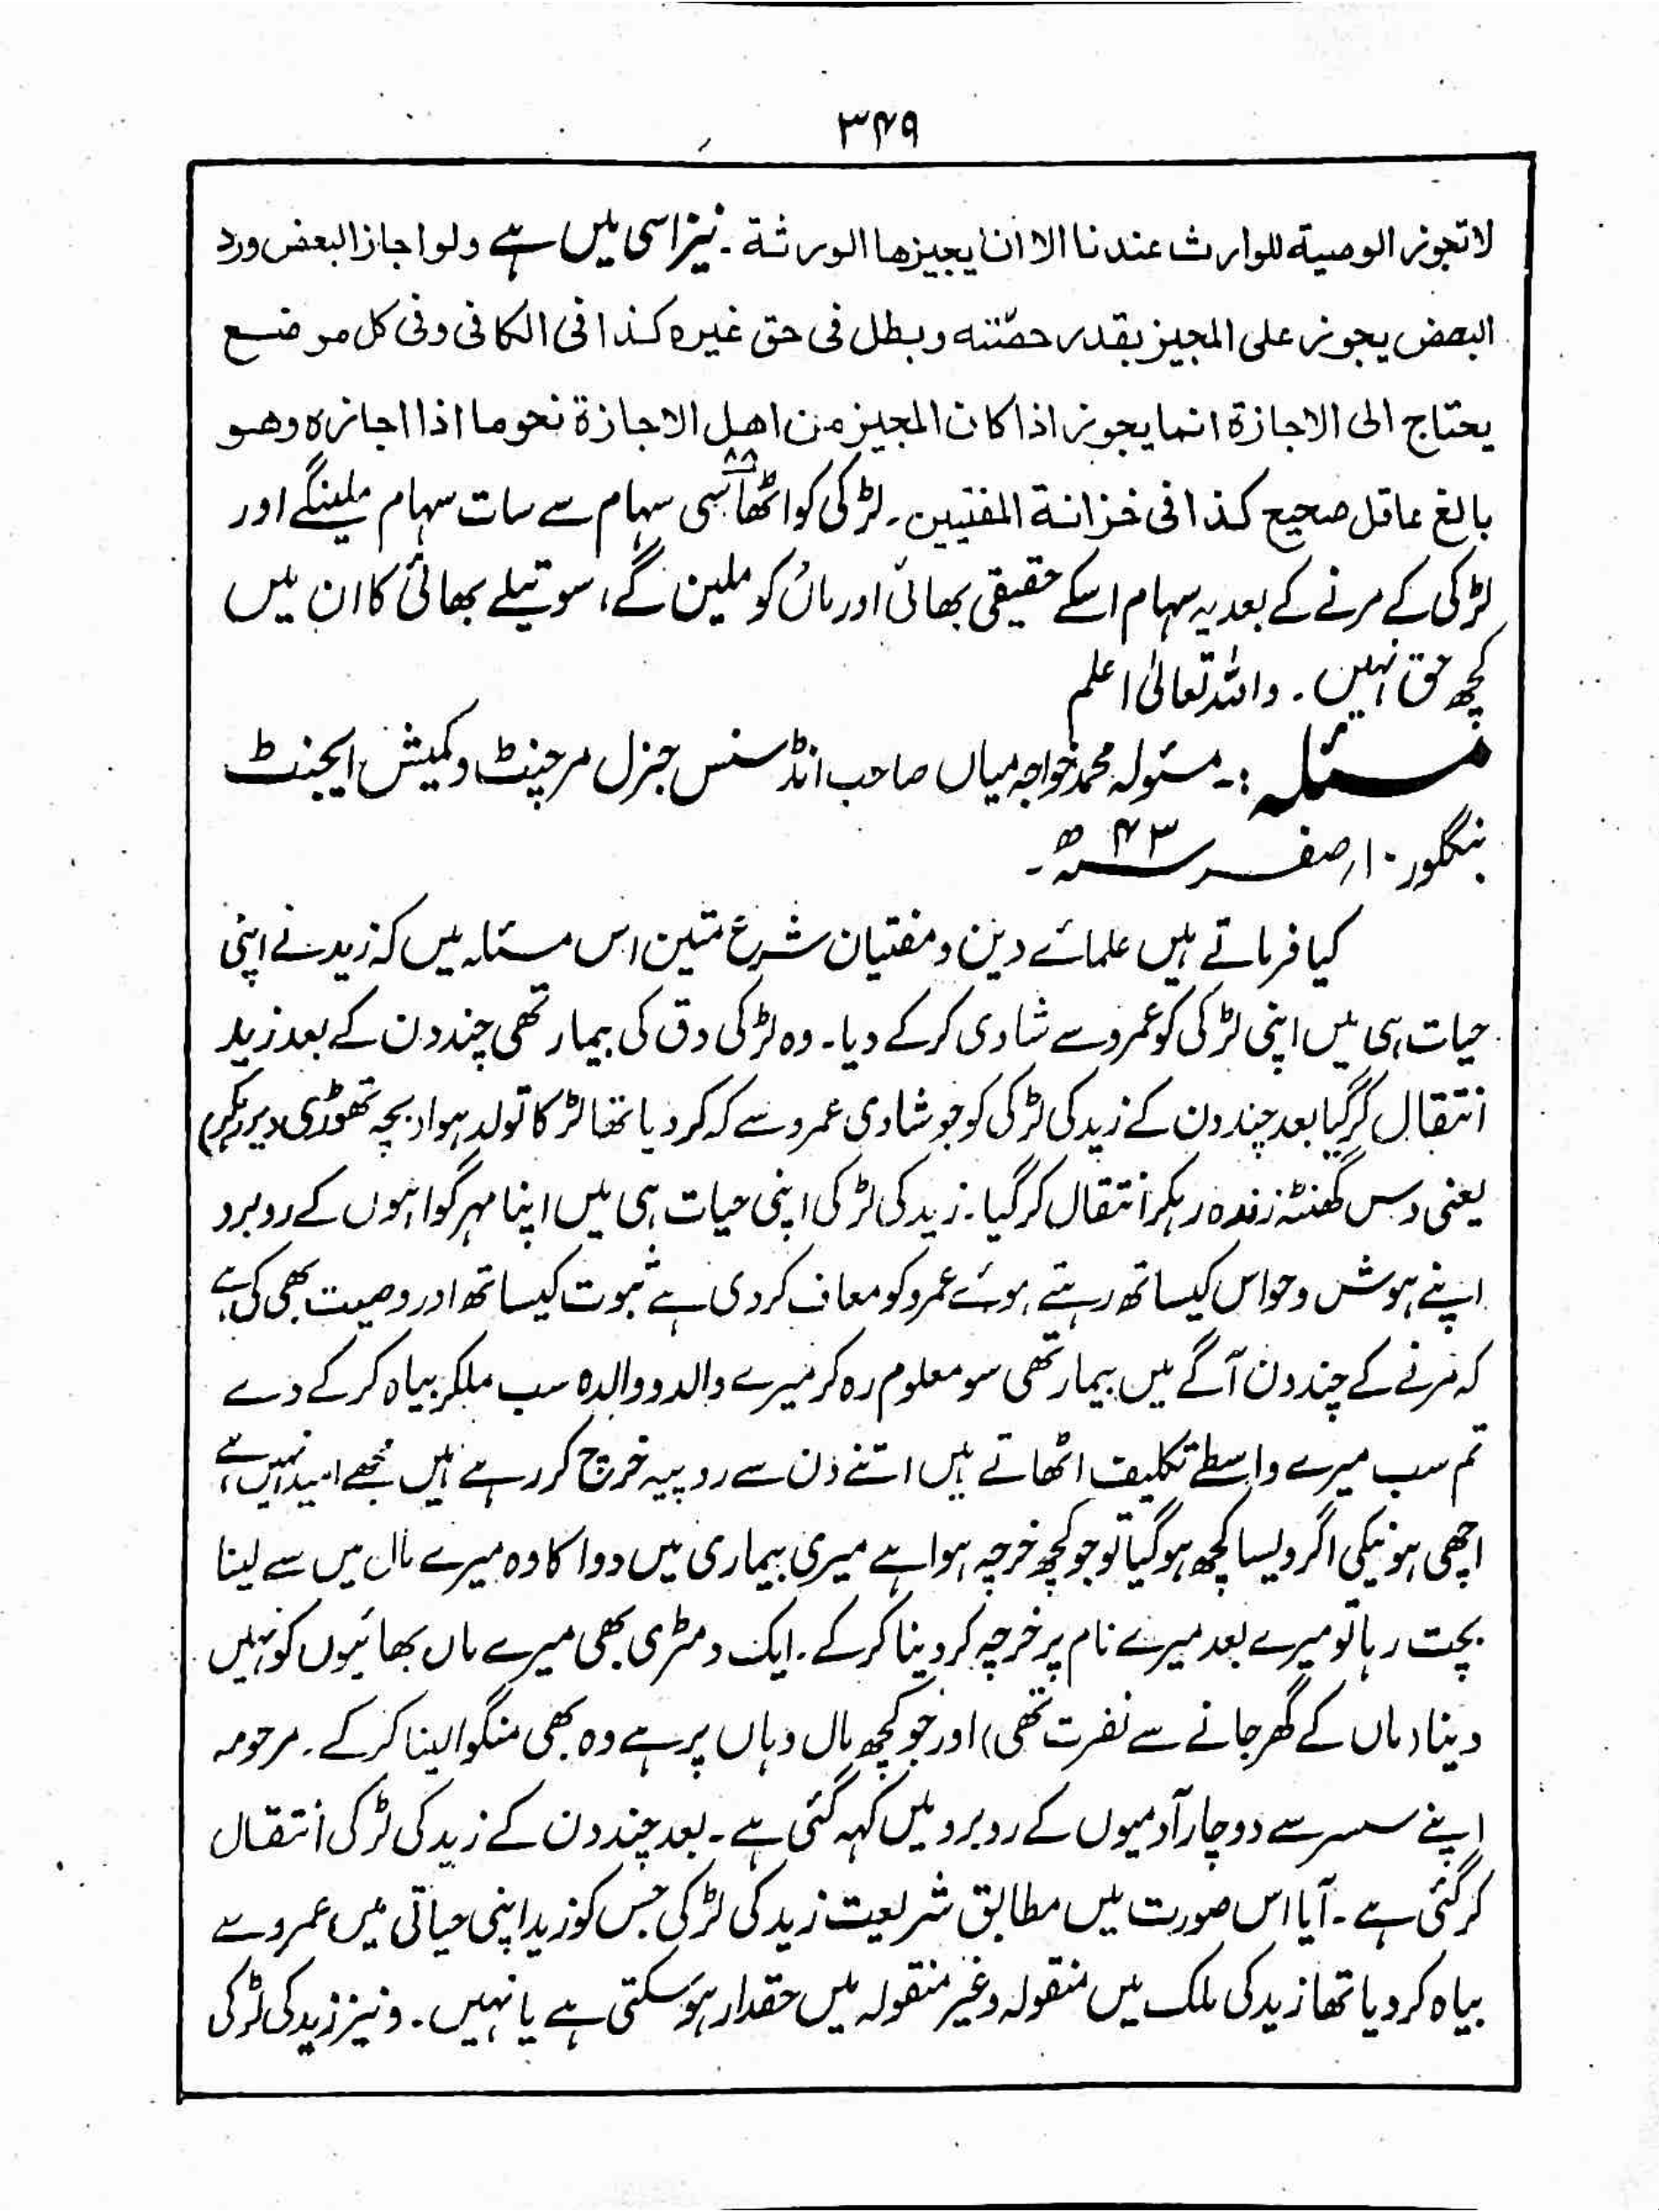 ۳۴۹
لا تجوز الوصیة للوارث عندنا الا ان یجیزھا الورثة۔ نیز اسی میں ہے ولو اجاز البعض ورد
البعض یجوز علی المجیز بقدر حصّته وبطل فی حق غیرہ کذا فی الکافی وفی کل موضع
یحتاج الی الاجازة انما یجوز اذا کان المجیز من اھل الاجازة نحو ما اذا اجازہ وھو
بالغ عاقل صحیح کذا فی خزانة المفتیین۔ لڑکی کو اٹھاسی ۸۸ سہام سے سات سہام ملینگے اور
لڑکی کے مرنے کے بعد یہ سہام اسکے حقیقی بھائی اور ماں کو ملیں گے، سوتیلے بھائی کا ان میں
کچھ حق نہیں۔ واللہ تعالیٰ اعلم
مسئلہ:۔ مسئولہ محمد خواجہ میاں صاحب انڈ سنس جنرل مرچنٹ و کمیشن ایجنٹ
بنگلور ۱۰ ر صفر سنہ ۴۳ ھ۔
کیا فرماتے ہیں علمائے دین و مفتیان شرع متین اس مسئلہ میں کہ زید نے اپنی
حیات ہی میں اپنی لڑکی کو عمرو سے شادی کر کے دیا۔ وہ لڑکی دق کی بیمار تھی چند دن کے بعد زید
انتقال کر گیا بعد چند دن کے زید کی لڑکی کو جو شادی عمرو سے کہ کر دیا تھا لڑکا تولد ہوا، بچہ تھوڑی دیر رہکر)
یعنی دس گھنٹہ زندہ رہکر انتقال کر گیا۔ زید کی لڑکی اپنی حیات ہی میں اپنا مہر گواہوں کے روبرو
اپنے ہوش و حواس کیساتھ رہتے ہوئے عمرو کو معاف کر دی ہے ثبوت کیساتھ اور وصیت بھی کی ہے
کہ مرنے کے چند دن آگے میں بیمار تھی سو معلوم رہ کر میرے والد و والدہ سب ملکر بیاہ کر کے دے
تم سب میرے واسطے تکلیف اٹھاتے ہیں اتنے دن سے روپیہ خرچ کر رہے ہیں مجھے امید نہیں ہے
اچھی ہونیکی اگر ویسا کچھ ہو گیا تو جو کچھ خرچہ ہوا ہے میری بیماری میں دوا کا وہ میرے مال میں سے لینا
بچت رہا تو میرے بعد میرے نام پر خرچہ کر دینا کر کے۔ ایک دمڑی بھی میرے ماں بھائیوں کو نہیں
دینا (ماں کے گھر جانے سے نفرت تھی) اور جو کچھ مال وہاں پر ہے وہ بھی منگوا لینا کر کے۔ مرحومہ
اپنے سسر سے دو چار آدمیوں کے روبرو میں کہہ گئی ہے۔ بعد چند دن کے زید کی لڑکی انتقال
کر گئی ہے۔ آیا اس صورت میں مطابق شریعت زید کی لڑکی جس کو زید اپنی حیاتی میں عمرو سے
بیاہ کر دیا تھا زید کی ملک میں منقولہ و غیر منقولہ میں حقدار ہو سکتی ہے یا نہیں۔ و نیز زید کی لڑکی